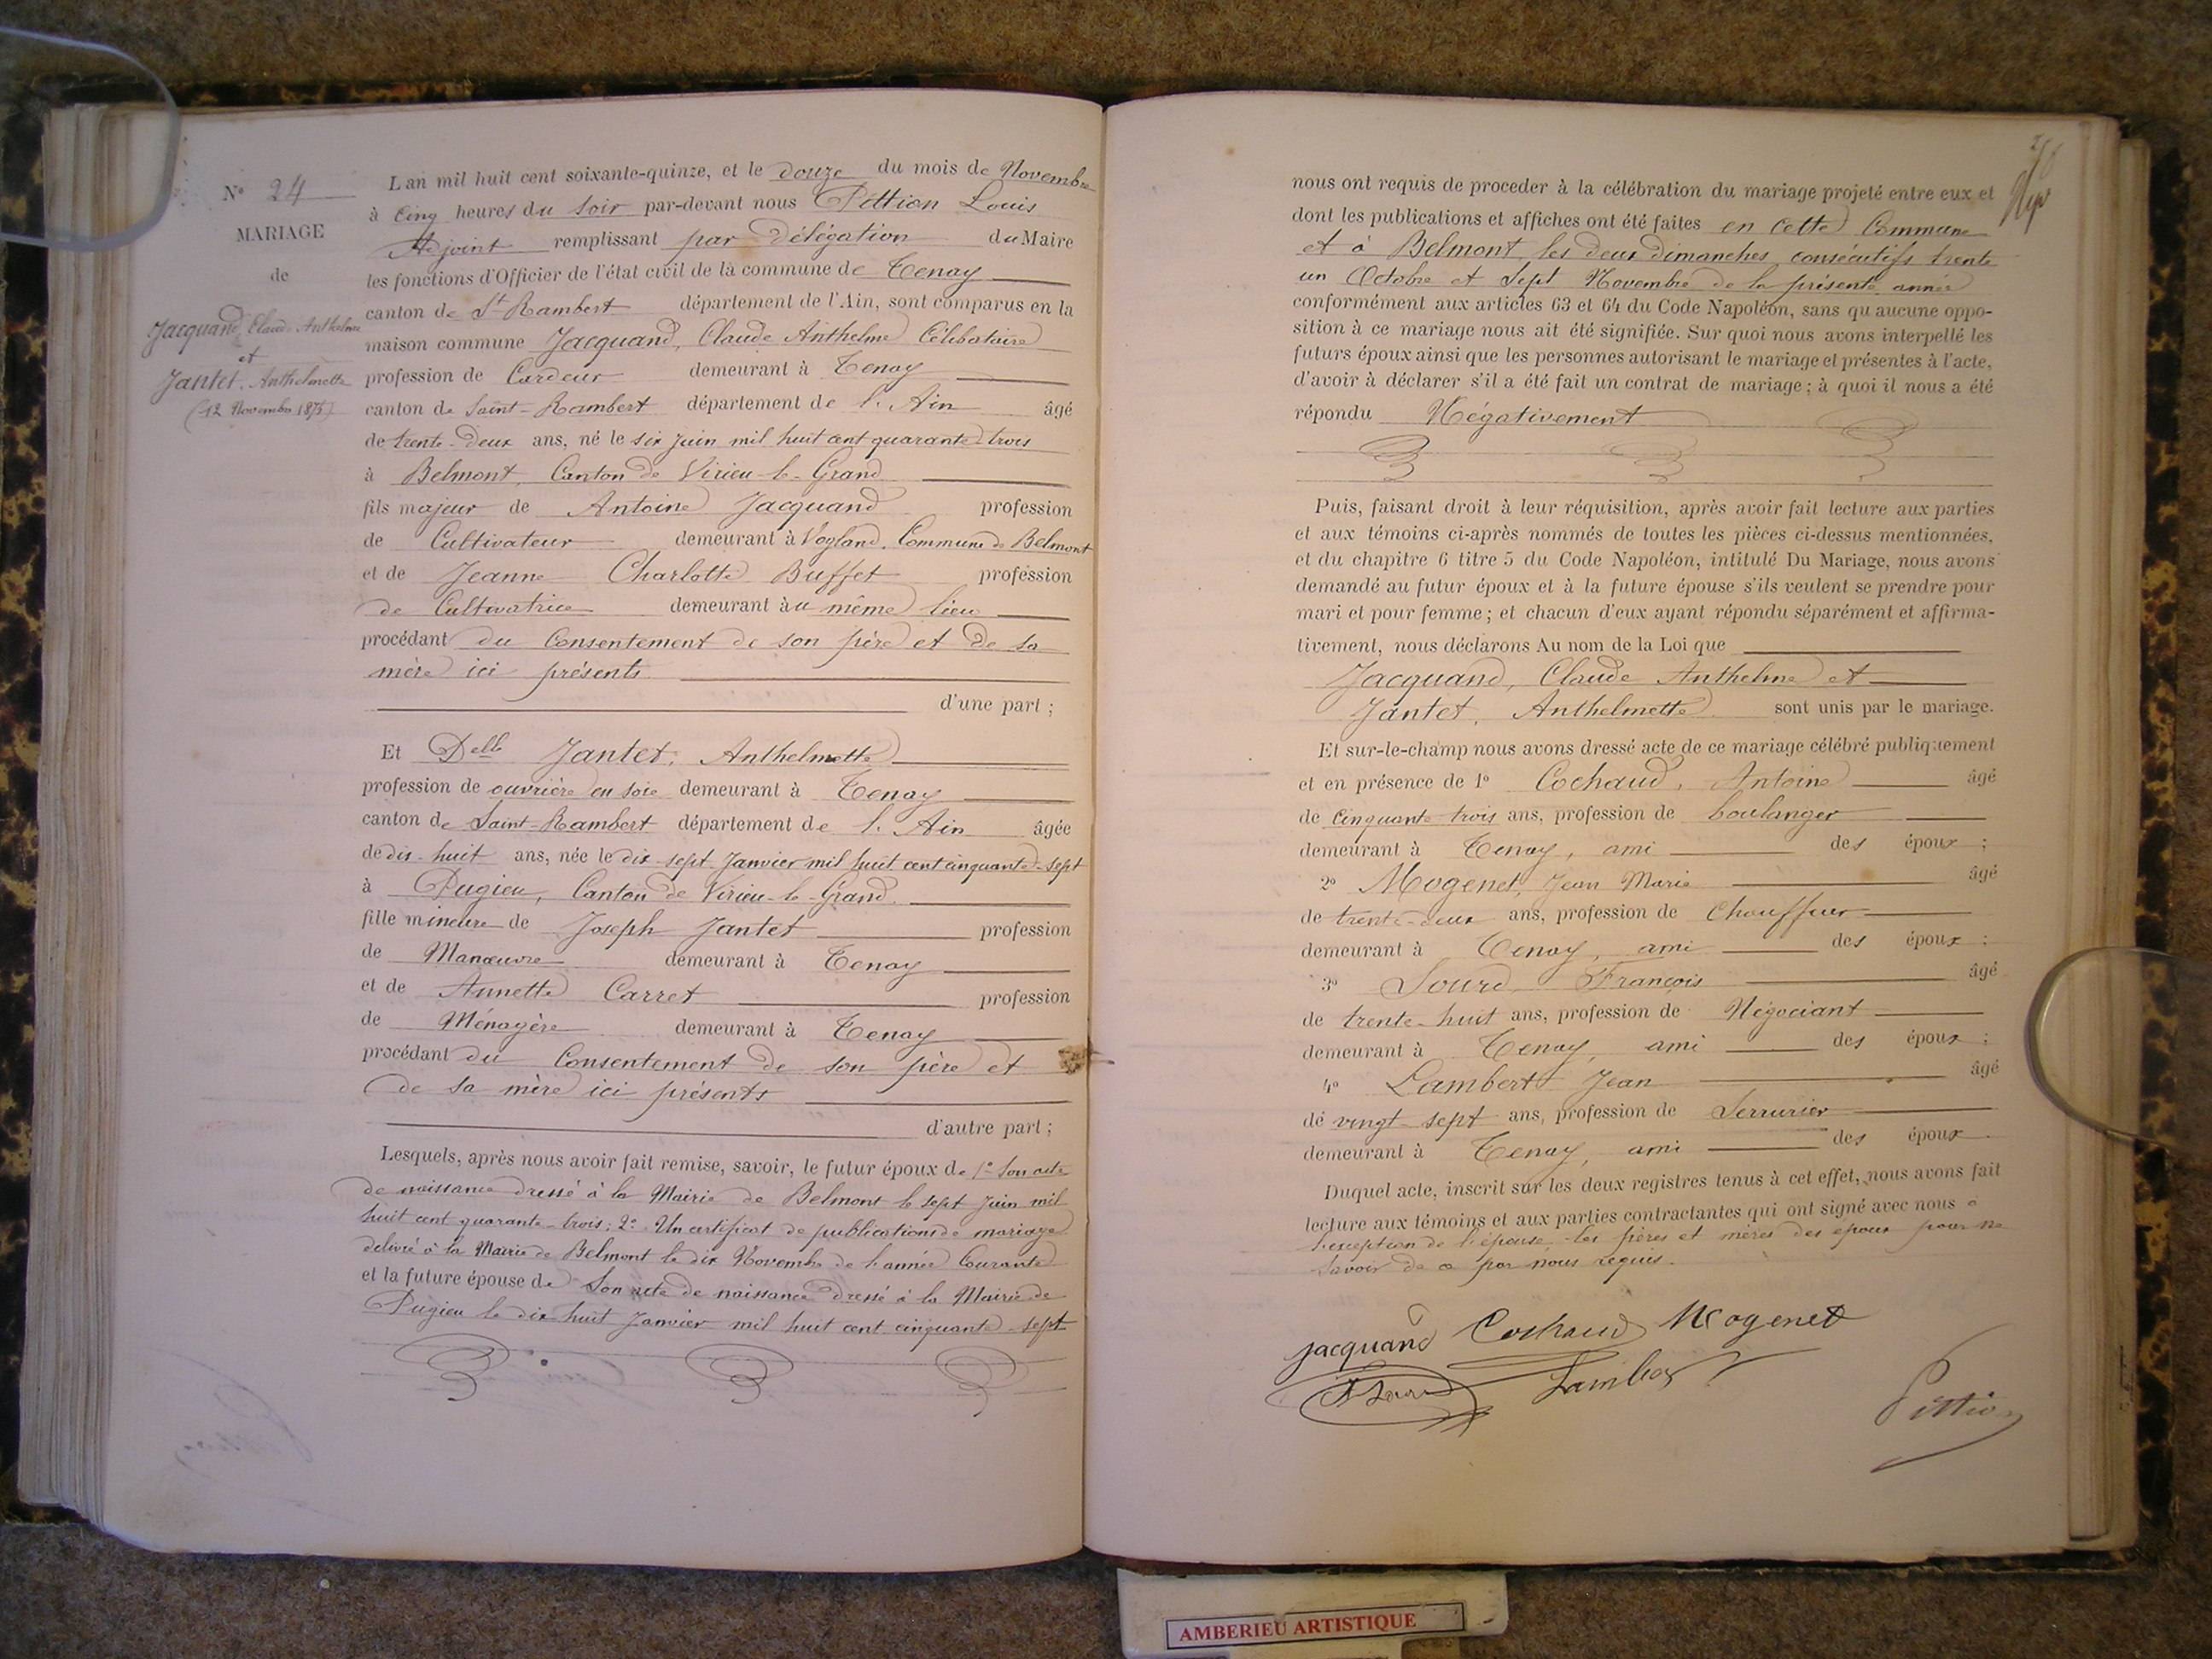 N° 24
MARIAGE
de
Jacquand, Claude Anthelme
et
Jantet, Anthelmette
(12 Novembre 1875)
L'an mil huit cent soixante-quinze, et le douze du mois de Novembre
à Cinq heures du soir par-devant nous Pittion Louis
Adjoint remplissant par délégation du Maire
les fonctions d'Officier de l'état civil de la commune de Tenay
canton de St Rambert département de l'Ain, sont comparus en la
maison commune Jacquand, Claude Anthelme Célibataire
profession de Cardeur demeurant à Tenay
canton de Saint-Rambert département de l'Ain âgé
de trente-deux ans, né le six Juin mil huit cent quarante-trois
à Belmont, Canton de Virieu-le-Grand
fils majeur de Antoine Jacquand profession
de Cultivateur demeurant à Vogland, Commune de Belmont
et de Jeanne Charlotte Buffet profession
de Cultivatrice demeurant au même lieu
procédant du Consentement de son père et de sa
mère ici présents
d'une part ;
Et Delle Jantet, Anthelmette
profession de ouvrière en soie demeurant à Tenay
canton de Saint-Rambert département de l'Ain âgée
de dix-huit ans, née le dix-sept Janvier mil huit cent cinquante-sept
à Pugieu, Canton de Virieu-le-Grand
fille mineure de Joseph Jantet profession
de Manœuvre demeurant à Tenay
et de Annette Carret profession
de Ménagère demeurant à Tenay
procédant du Consentement de son père et
de sa mère ici présents
d'autre part ;
Lesquels, après nous avoir fait remise, savoir, le futur époux de 1° Son acte
de naissance dressé à la Mairie de Belmont le sept Juin mil
huit cent quarante-trois; 2° Un certificat de publications de mariage
délivré à la Mairie de Belmont le dix Novembre de l'année Courante
et la future épouse de Son acte de naissance dressé à la Mairie de
Pugieu le dix huit Janvier mil huit cent cinquante-sept
nous ont requis de proceder à la célébration du mariage projeté entre eux et
dont les publications et affiches ont été faites en cette Commune
et à Belmont, les deux dimanches consécutifs trente
un Octobre et Sept Novembre de la présente année
conformément aux articles 63 et 64 du Code Napoléon, sans qu'aucune oppo-
sition à ce mariage nous ait été signifiée. Sur quoi nous avons interpellé les
futurs époux ainsi que les personnes autorisant le mariage et présentes à l'acte,
d'avoir à déclarer s'il a été fait un contrat de mariage ; à quoi il nous a été
répondu Négativement
Puis, faisant droit à leur réquisition, après avoir fait lecture aux parties
et aux témoins ci-après nommés de toutes les pièces ci-dessus mentionnées,
et du chapitre 6 titre 5 du Code Napoléon, intitulé Du Mariage, nous avons
demandé au futur époux et à la future épouse s'ils veulent se prendre pour
mari et pour femme ; et chacun d'eux ayant répondu séparément et affirma-
tivement, nous déclarons Au nom de la Loi que
Jacquand, Claude Anthelme et
Jantet, Anthelmette sont unis par le mariage.
Et sur-le-champ nous avons dressé acte de ce mariage célébré publiquement
et en présence de 1° Cochaud, Antoine âgé
de Cinquante trois ans, profession de boulanger
demeurant à Tenay, ami des époux ;
2° Mogenet, Jean Marie âgé
de trente-deux ans, profession de Chauffeur
demeurant à Tenay, ami des époux ;
3° Sourd, François âgé
de trente-huit ans, profession de Négociant
demeurant à Tenay, ami des époux ;
4° Lambert Jean âgé
de vingt-sept ans, profession de Serrurier
demeurant à Tenay, ami des époux
Duquel acte, inscrit sur les deux registres tenus à cet effet, nous avons fait
lecture aux témoins et aux parties contractantes qui ont signé avec nous à
l'exception de l'épouse, les pères et mères des époux pour ne
savoir de ce par nous requis.
jacquand Cochaud Mogenet
Lambert
Pittion
AMBERIEU ARTISTIQUE